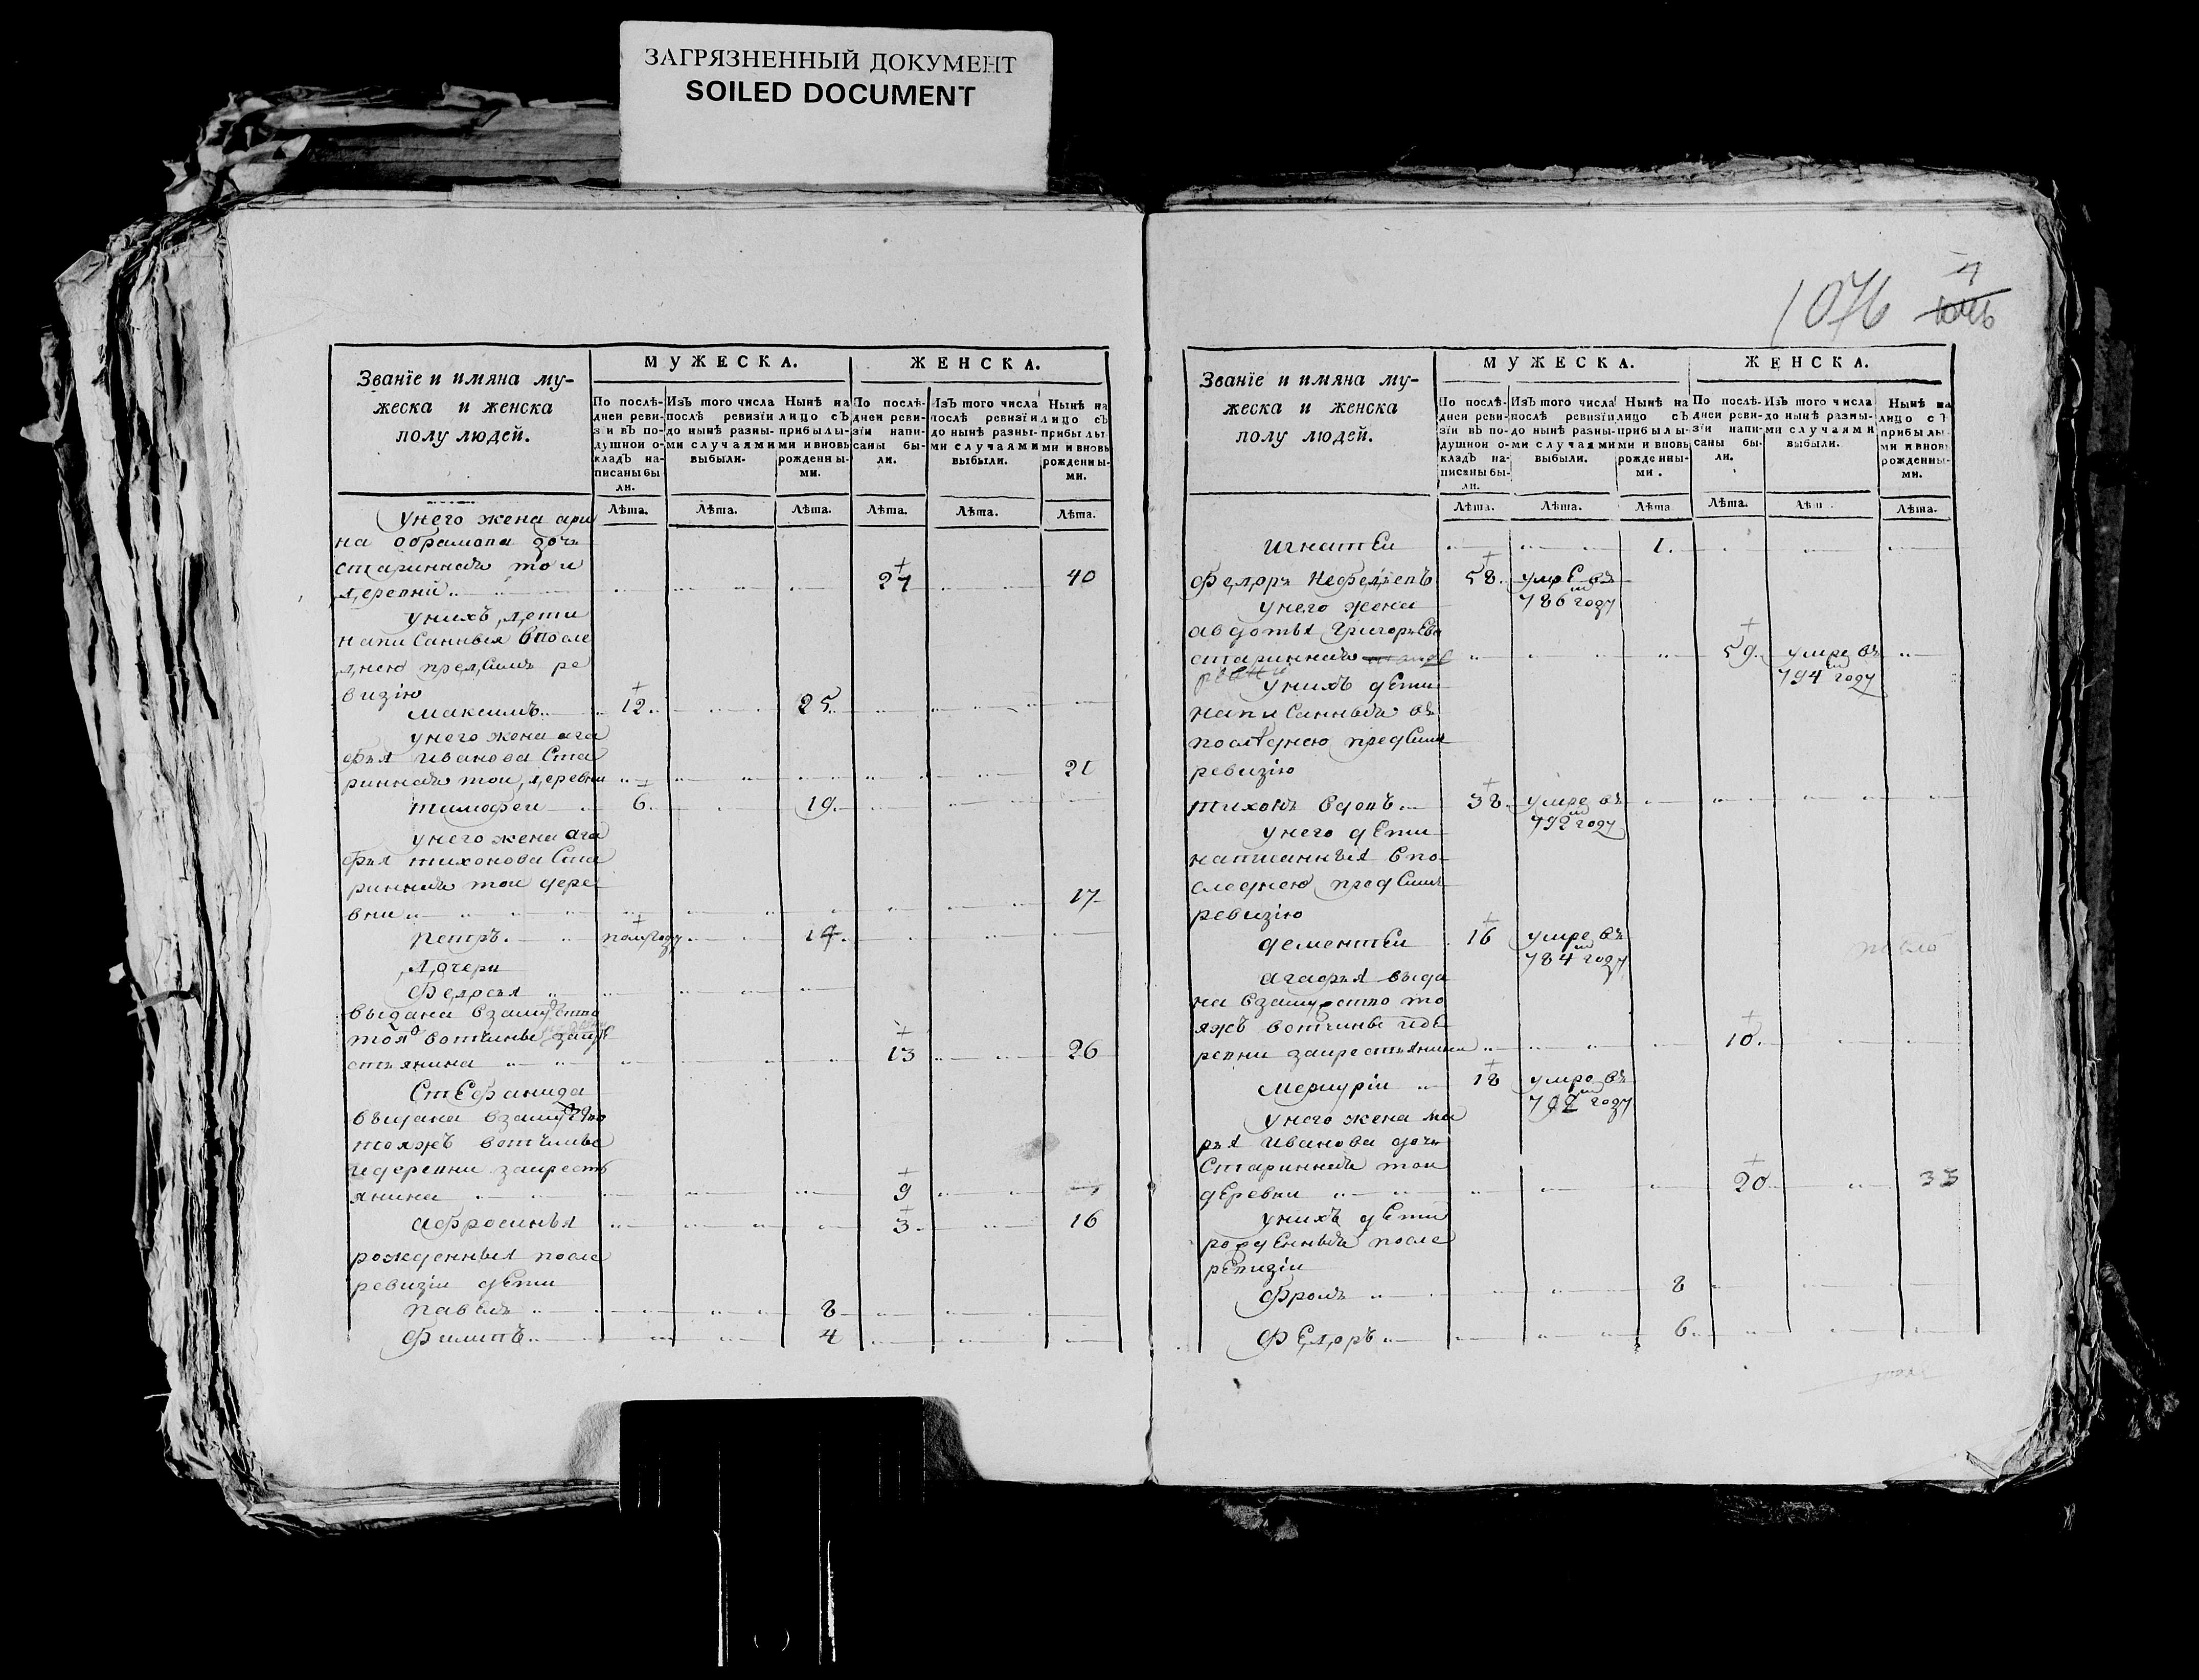 ЗАГРЯЗНЕННЫЙ ДОКУМЕНТ
SOILED DOCUMENT
Званїе и имяна му-
жеска и женска
полу людей.
МУЖЕСКА.
ЖЕНСКА.
По послѣ-
дней реви-
зїи въ по-
душной о-
кладъ на-
писаны бы-
ли.
Изъ того числа
послѣ ревизїи
до нынѣ разны-
ми случаями
выбыли.
Нынѣ на
лицо съ
прибылы-
ми и вновь
рожденны-
ми.
По послѣ-
дней реви-
зїи напи-
саны бы-
ли.
Изъ того числа
послѣ ревизїи
до нынѣ разны-
ми случаями
выбыли.
Нынѣ на
лицо съ
прибылы-
ми и вновь
рожденны-
ми.
Лѣта. Лѣта. Лѣта. Лѣта. Лѣта. Лѣта.
унего жена ари
на абрамова дочь
стариннаѧ тои
деревни 27 40
унихъ дети
написанныя впосле
днею пред сим ре
визїю
максимъ 12. 25.
унего жена ага
фья иванова ста
риннаѧ тои деревни 21
тимофеи 6. 19.
унего жена ага
фья тихонова ста
риннаѧ тои дере
вни 17
петръ. полугоду 14.
дочери
Федосья
выдана взамужство
тоя вотчины
стьянина 13 26
Стефанида
выдана взамужство
тояжъ вотчины
идеревни закресть
янина 9
афросинья 3. 16
рожденныя после
ревизїи дети
павелъ 8
Филипъ 4
1076
Званїе и имяна му-
жеска и женска
полу людей.
МУЖЕСКА.
ЖЕНСКА.
По послѣ-
дней реви-
зїи въ по-
душной о-
кладъ на-
писаны бы-
ли.
Изъ того числа
послѣ ревизїи
до нынѣ разны-
ми случаями
выбыли.
Нынѣ на
лицо съ
прибылы-
ми и вновь
рожденны-
ми.
По послѣ-
дней реви-
зїи напи-
саны бы-
ли.
Изъ того числа
до нынѣ разны-
ми случаями
выбыли.
Нынѣ на
лицо съ
прибылы-
ми и вновь
рожденны-
ми.
Лѣта. Лѣта. Лѣта. Лѣта. Лѣта. Лѣта.
игнатеи 1.
Федоръ Нефедьевъ 58. умре въ
786м году
унего жена
авдотья григорьева
стариннаѧ 59. умре въ
794м году
унихъ дети
написанныѧ въ
последнею пред сим
ревизїю
тихонъ вдовъ 38. умре въ
792м году
унего дети
написанныя впо
следнею пред сим
ревизїю
дементеи 16 умре въ
784м году
агафья выда
на взамужство то
яжъ вотчины иде
ревни закрестьянина 10.
меркурїи 18 умре въ
792м году
унего жена ма
рья иванова дочь
стариннаѧ тои
деревни 20 33
унихъ дети
рожденныѧ после
ревизїи
Фролъ 8
Федоръ 6